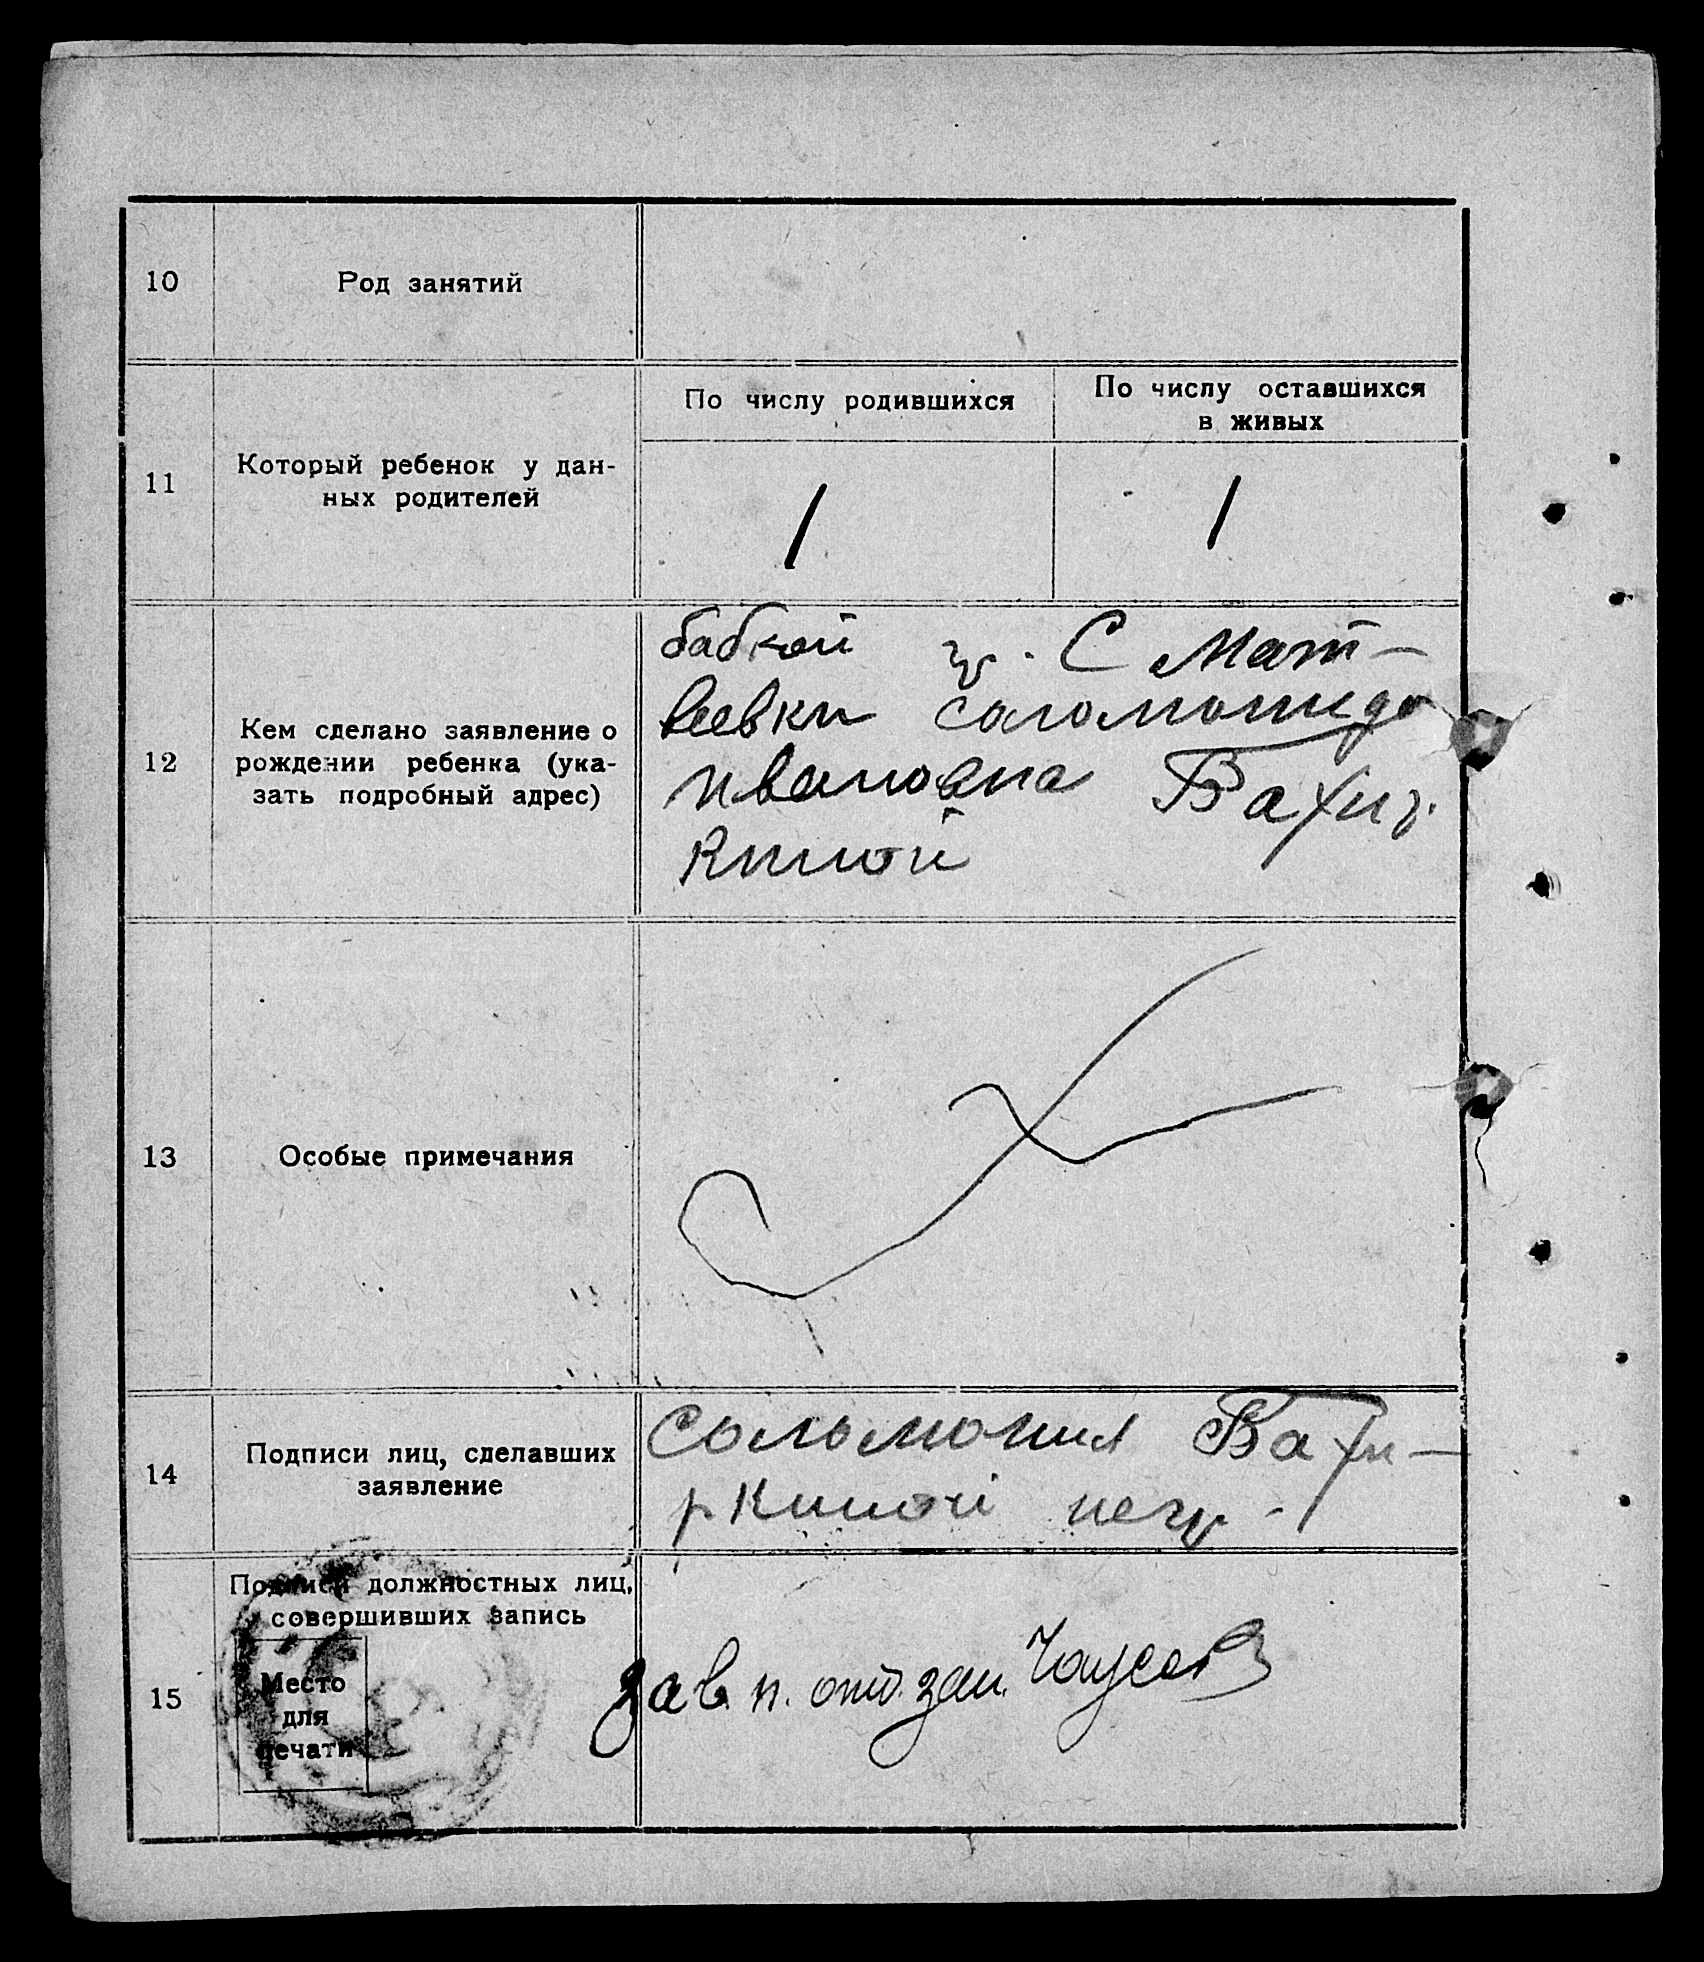 10
Род занятий
11
Который ребенок у дан-
ных родителей
По числу родившихся
По числу оставшихся
в живых
1
1
12
Кем сделано заявление о
рождении ребенка (ука-
зать подробный адрес)
бабкой гр. С Мат-
веевки
ивановна Вахир
киной
13
Особые примечания
14
Подписи лиц, сделавших
заявление
Сольмония Вахи-
ркиной негр-
15
Подписи должностных лиц,
совершивших запись
Место
для
печати
Зав п. отд. зап. Чаусов